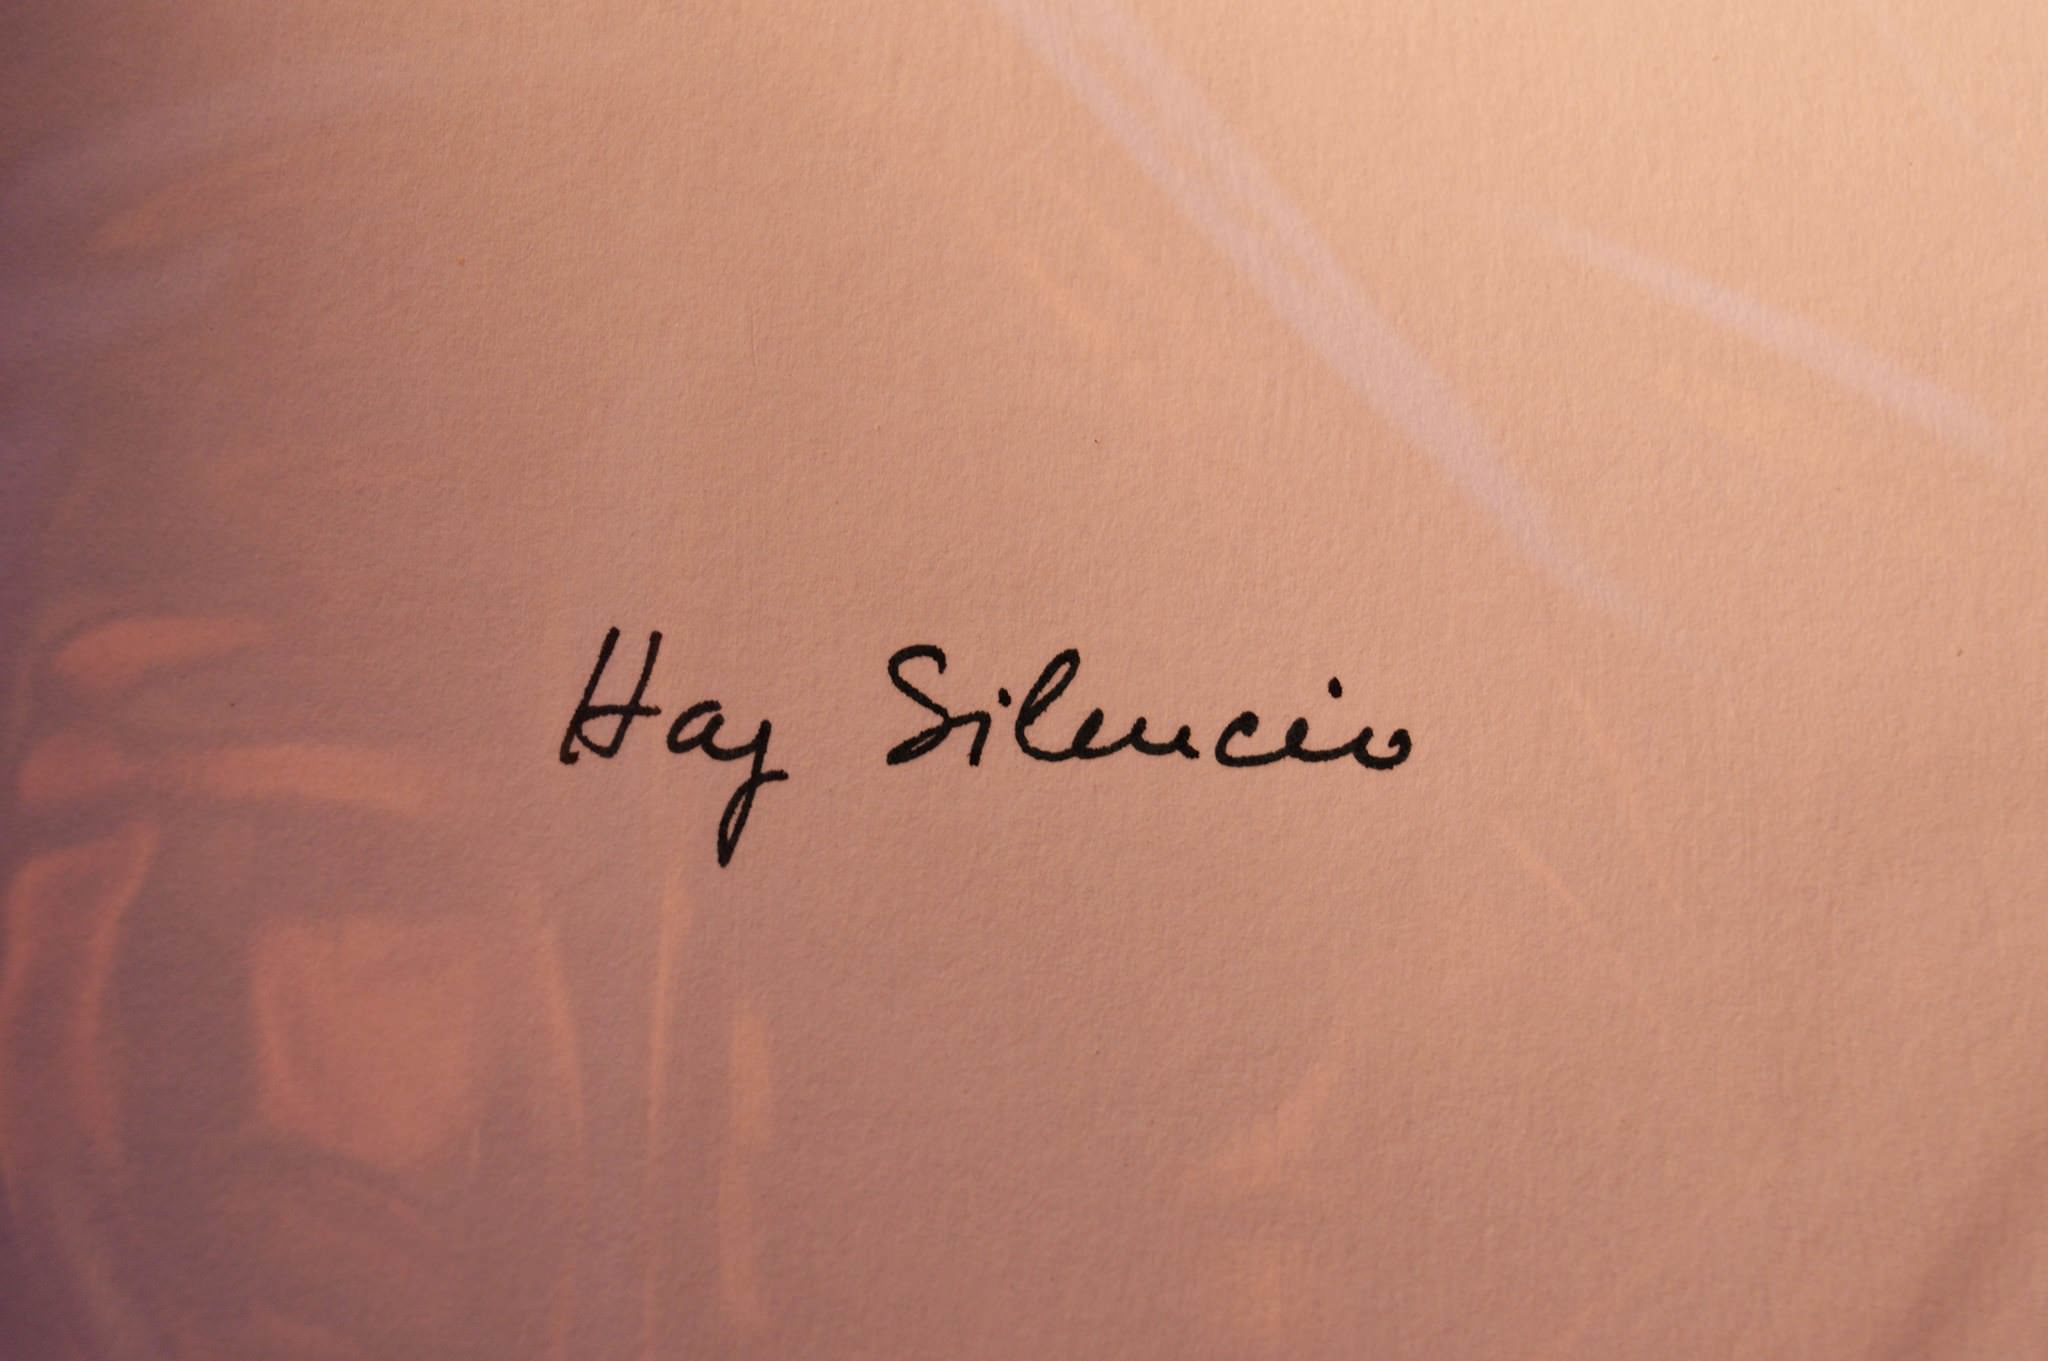 Hay Silencio